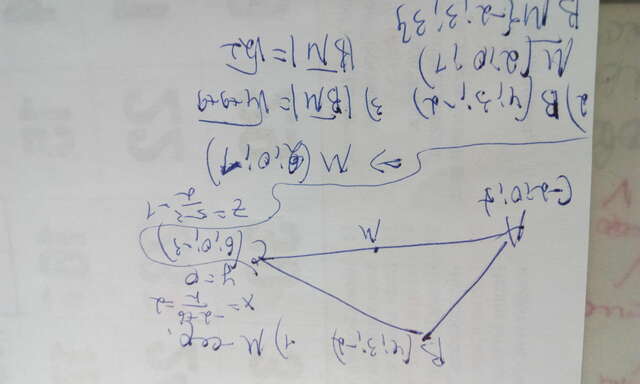 B (4; 3; -2)
1) M - сер.
x = -2+6/2 = 2
y = 0
C (6; 0; -3)
z = 5-3/2 = 1
A
M
=> M (2; 0; 1)
2) B (4; 3; -2)
M (2; 0; 1)
BM {-2; 3; 3}
3) |BM| = √4+9+9
|BM| = √22